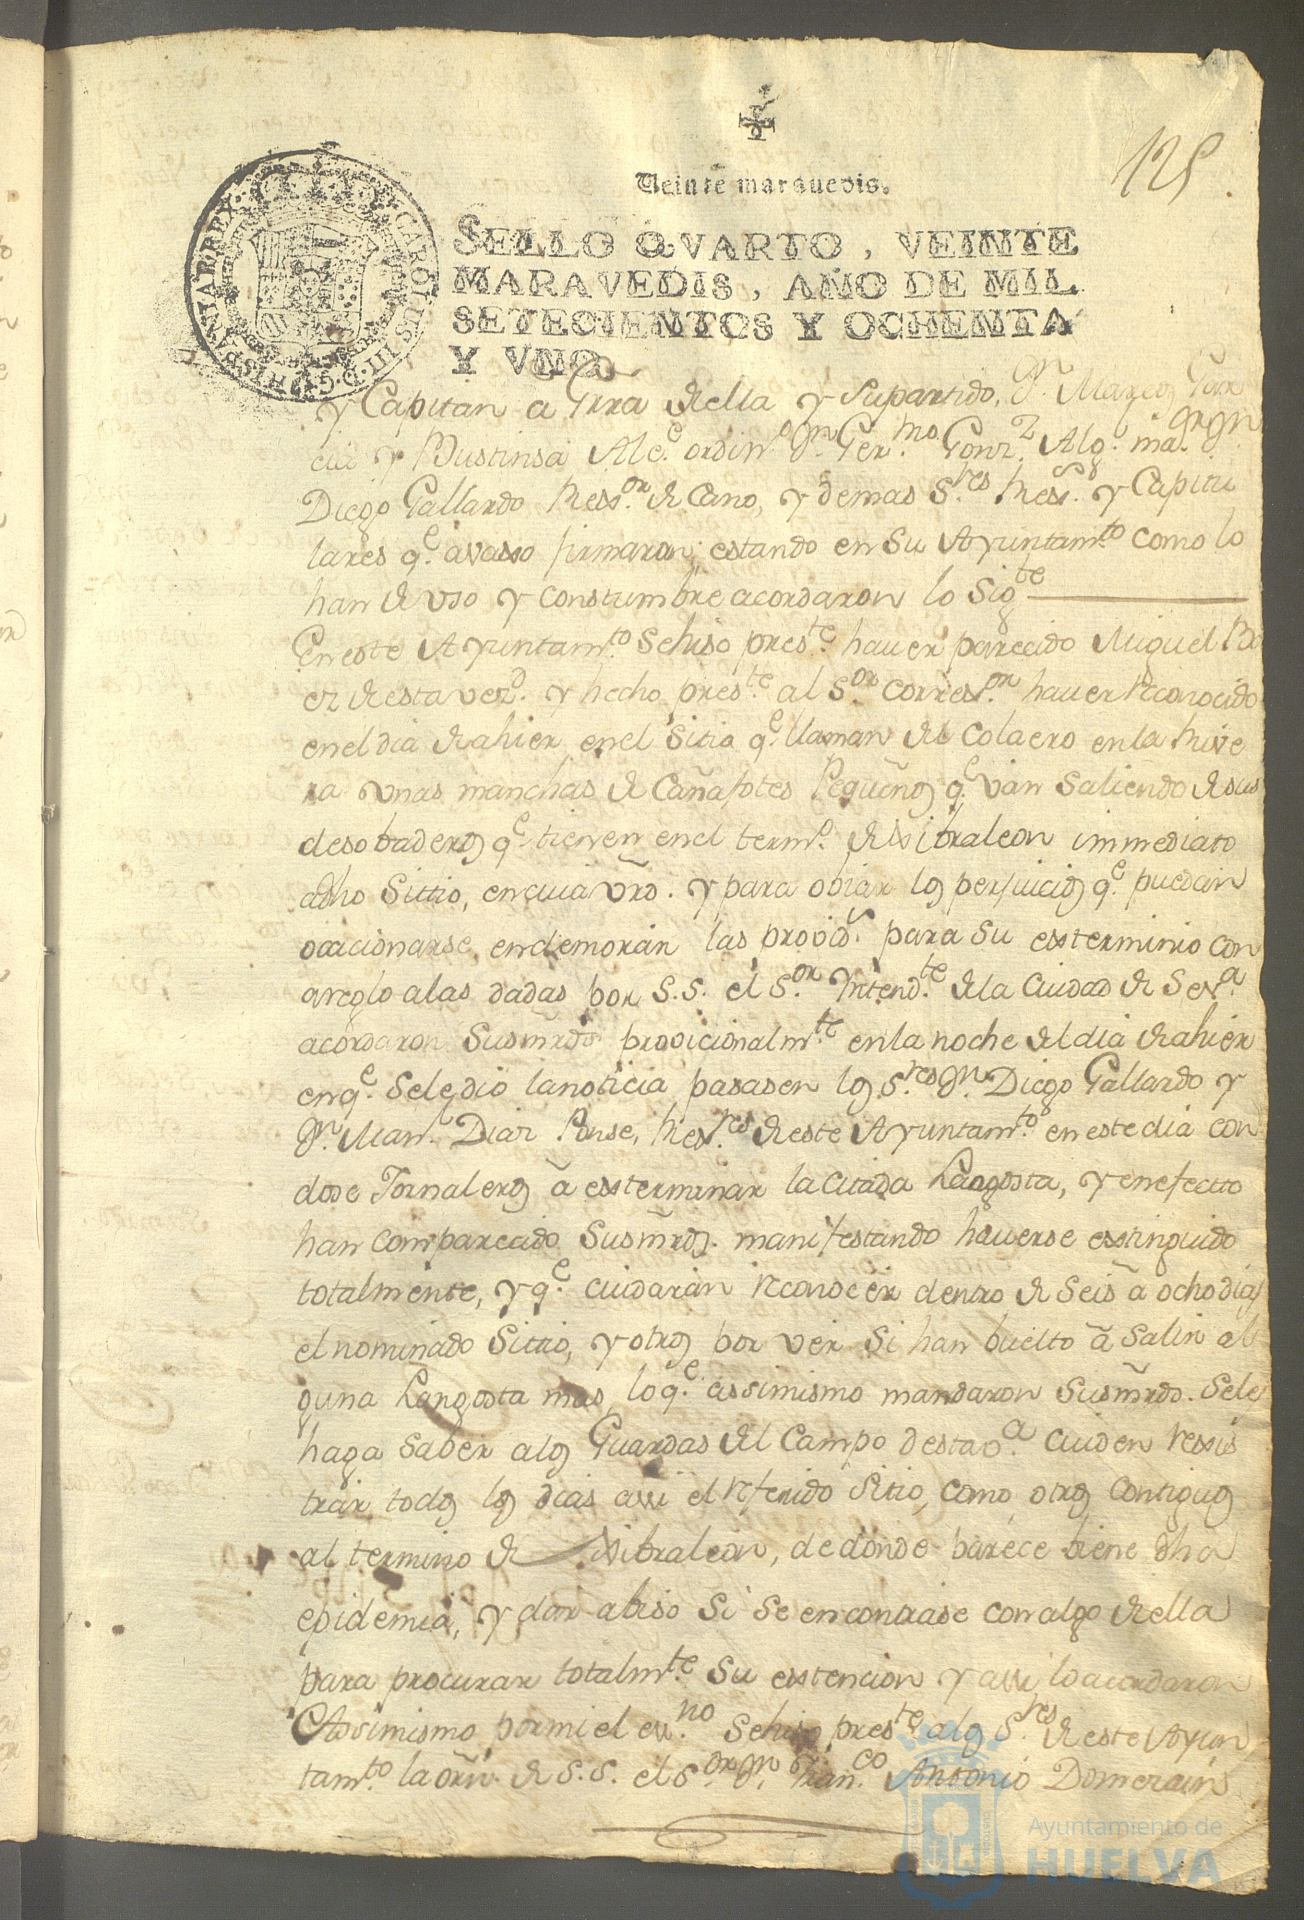 125
Veinte marauedis.
SELLO QVARTO, VEINTE
MARAVEDIS, AÑO DE MIL
SETECIENTOS Y OCHENTA
Y VNO.
CAROLUS III D G HISPANIAR REX
y Capitan a Grra della y Supartido, Dn. Marcos Gar
cia y Bustinsa Alce. ordino. Dn. Germo. Gonz. Algl. mar. Dn.
Diego Gallardo Rexor. de Cano, y demas Sres. Rexs. y Capitu
lares qe. avaxo firmaron; estando en su Ayuntamto. como lo
han de uso y constumbre acordaron lo Sigte
En este Ayuntamto. se hiso preste. hauer parecido Miguel Bo
ez de esta vezd. y hecho preste. al Sor. Correxor. hauer reconocido
en el dia de ahier, en el Sitio qe. llaman del Colaero en la Rive
ra unas manchas de Cañafotes Pequeños qe. van saliendo de sus
desobaderos qe. tienen en el termo. de Xibraleon immediato
adho Sittio, en cuia vrd. y para obiar los perjuicios qe. puedan
occicionarse, en demorar las provids. para su exterminio con
areglo a las dadas por S.S. el Sor. Yntendte. de la Ciudad de Seva.
acordaron Susmrds. provicionalmte. en la noche del dia de ahier
en qe. se le dio la noticia pasasen los Sres. Dn. Diego Gallardo y
Dn. Manl. Diaz Ponse, Rexres. de este Ayuntamto. en este dia con
dose Jornaleros â exterminar la citada Langosta, y en efecto
han comparecido Susmrds. manifestando hauerse extinguido
totalmente, y qe. cuidarán reconocer dentro de seis â ocho dias
el nominado Sitio, y otros por ver si han buelto â salir al
guna Langosta mas, lo qe. assimismo mandaron Susmrds. se les
haga saber a los Guardas del Campo desta va. cuiden rexis
trar todos los dias assi el referido Sitio, como otros contiguos
al termino de Xibraleon, de donde parece biene dha
epidemia, y dar abiso si se encontrase con algo de ella
para procurar totalmte. su extencion y assi lo acordaron
Assimismo por mi el exno. se hiso preste. a los Sres. de este Ayun
tamto. la orn. de S.S. el Sor. Dn. Franco. Antonio Domezain
Ayuntamiento de
HUELVA